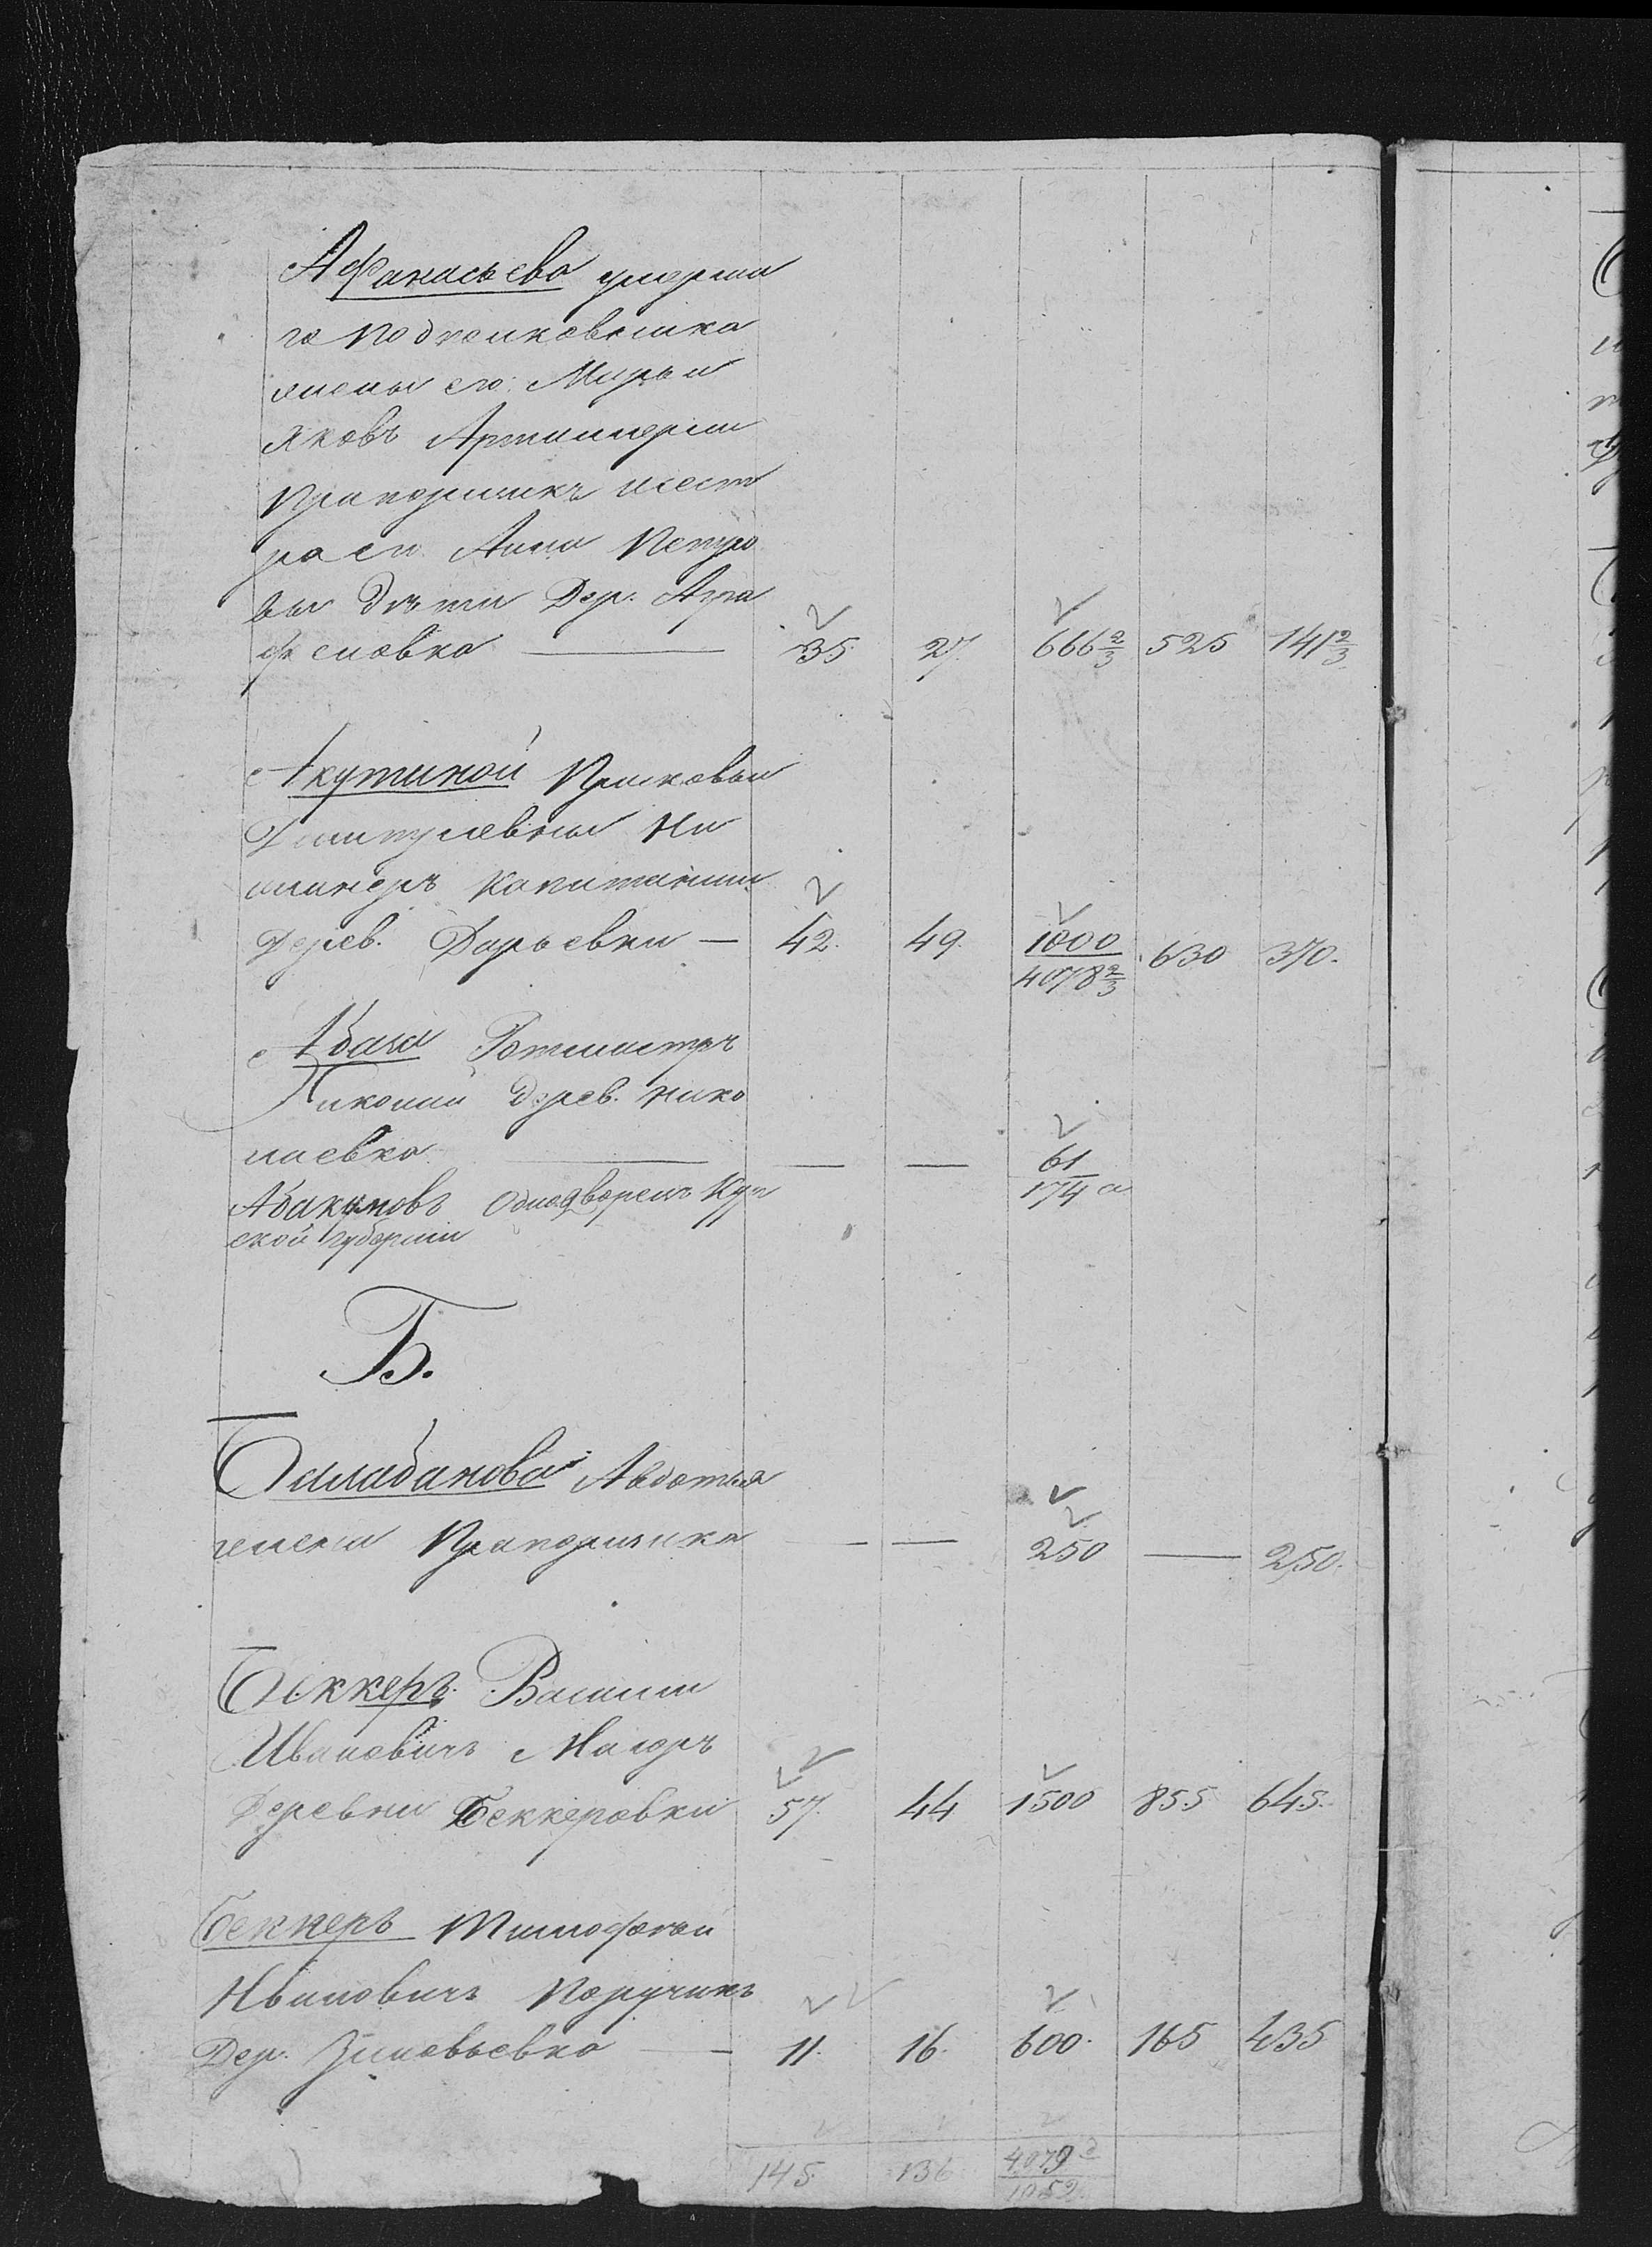 Афанасьева умерша
го Подполковника
жены его: Марьи
Яковъ Артиллерии
Прапорщикъ сест
ра его Анна Петро
вы дѣти Дер. Агра
феновка — 35. 27. 666 2/3 525 141 2/3
Акутиной Прасковьи
Дмитріевны Ин
женеръ Капитанши
Дерев. Дарьевки — 42. 49. 1000 630 370.
4078 2/3
Абаза Ротмистръ
Николай Дерев. Нико
лаевка — — — 61
174 а
Абакумовъ Однодворецъ Кур
ской губерніи
Б.
Баллабанова Авдотья
жена Прапорщика — — 250 — 250.
Беккеръ Василій
Ивановичъ Маіоръ
Деревни Беккеровки 57. 44 1500 855 645.
Беккеръ Тимофѣй
Ивановичъ Поручикъ
Дер. Зиновьевка — 11. 16. 600. 165 435
145 136 4079
1052